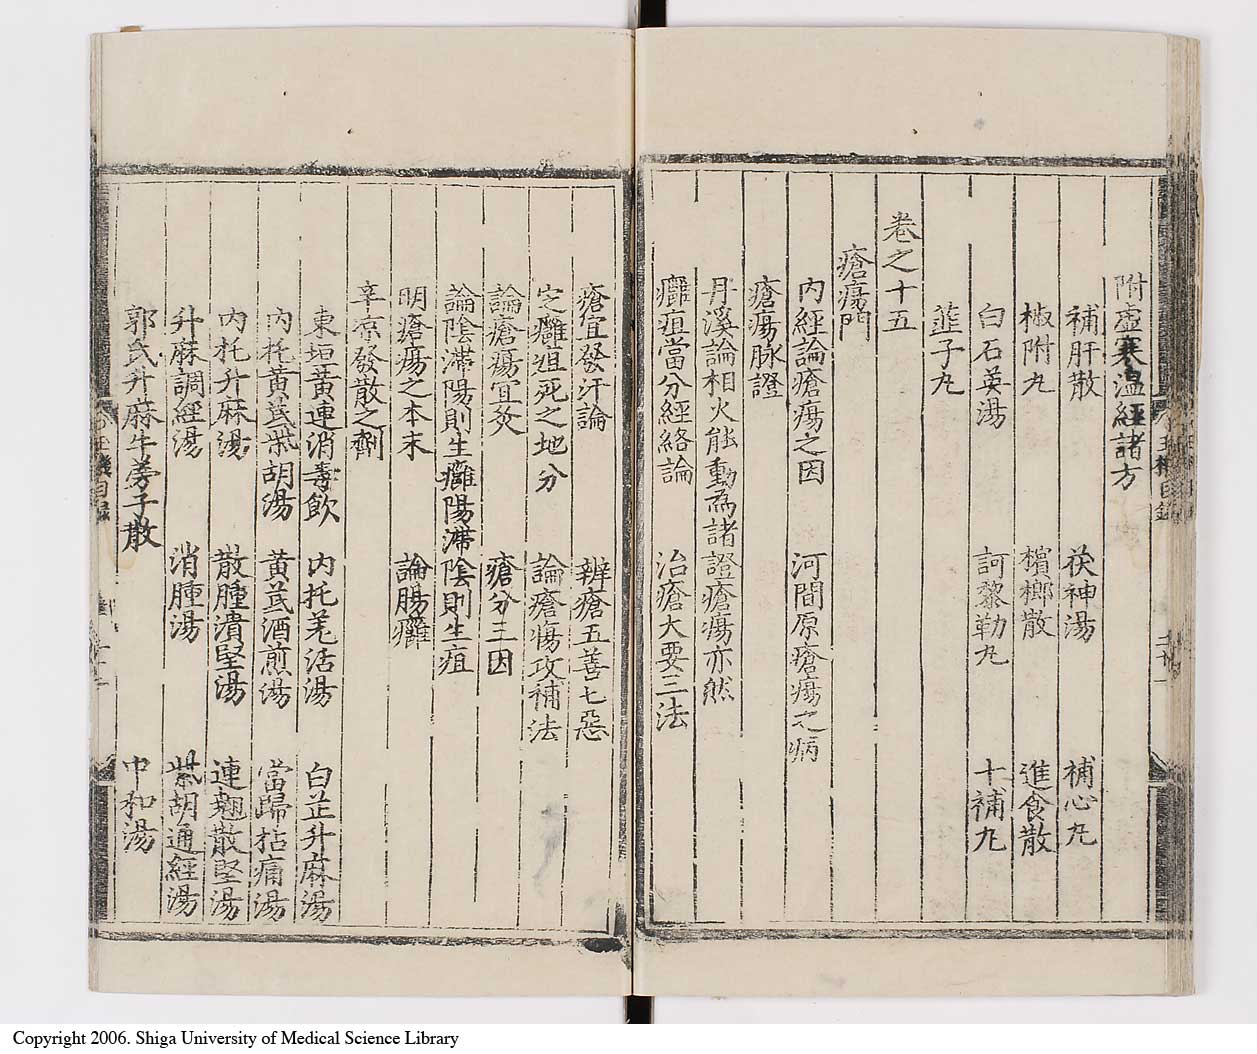 附虛寒温經諸方
補肝散　茯神湯　補心丸
椒附丸　檳榔散　進食散
白石英湯　訶黎勒丸　十補丸
韮子丸
卷之十五
瘡瘍門
內經論瘡瘍之因　河間原瘡瘍之病
瘡瘍脉證
丹溪論相火能動為諸證瘡瘍亦然
癰疽當分經絡論　治瘡大要三法
瘡宜發汗論　辨瘡五善七惡
定癰疽死之地分　論瘡瘍攻補法
論瘡瘍宜灸　瘡分三因
論陰滯陽則生癰陽滯陰則生疽
明瘡瘍之本末　論腸癰
辛凉發散之劑
東垣黃連消毒飲　內托羌活湯　白芷升麻湯
內托黃芪柴胡湯　黃芪酒煎湯　當歸拈痛湯
內托升麻湯　散腫潰堅湯　連翹散堅湯
升麻調經湯　消腫湯　柴胡通經湯
郭氏升麻牛蒡子散　中和湯
Copyright 2006. Shiga University of Medical Science Library